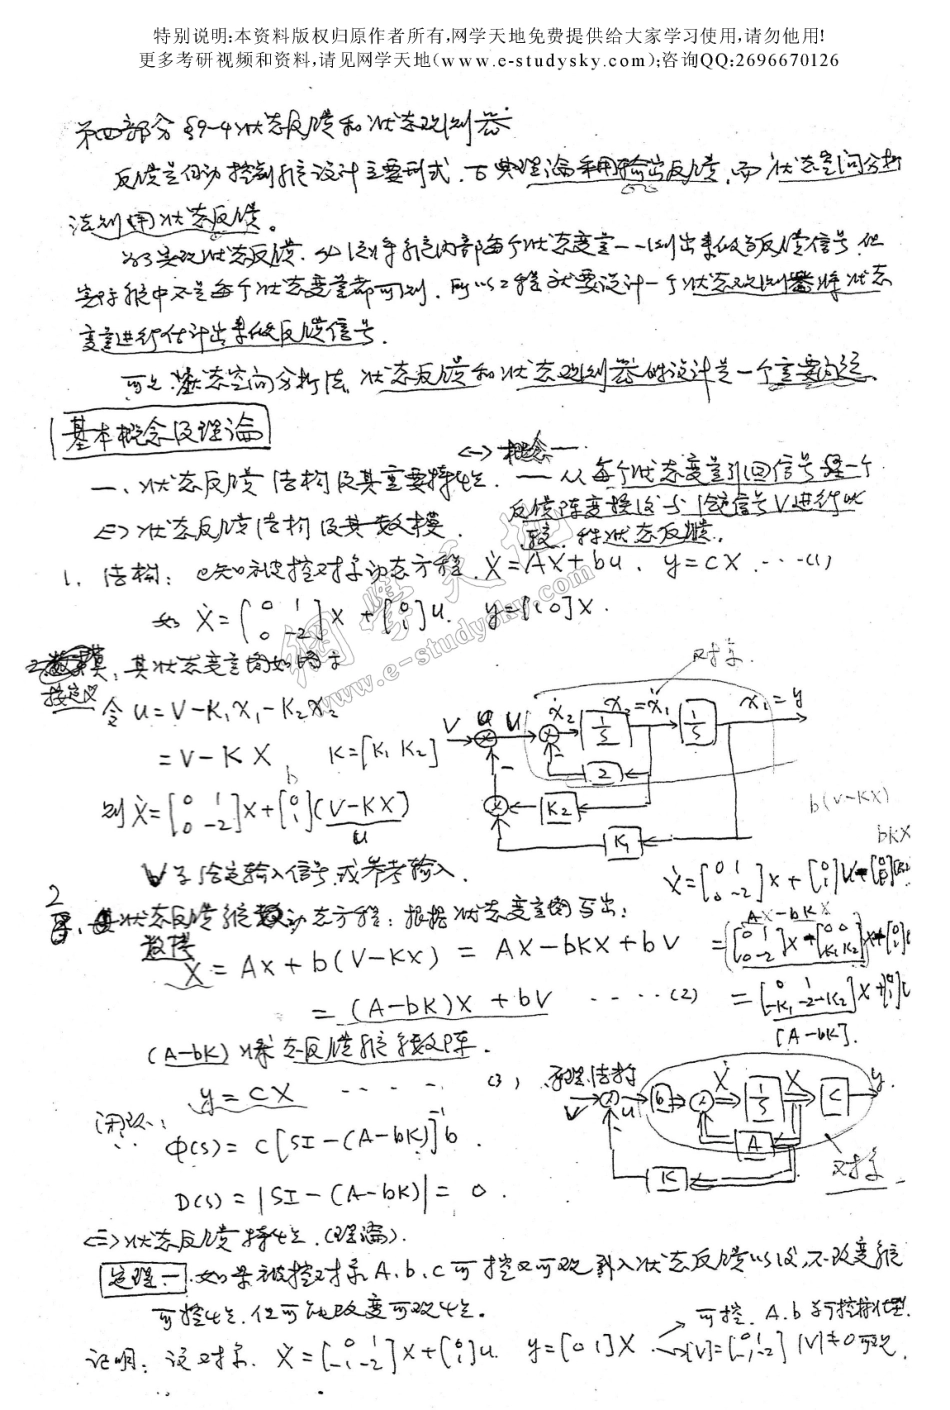 特别说明:本资料版权归原作者所有,网学天地免费提供给大家学习使用,请勿他用!
更多考研视频和资料,请见网学天地(www.e-studysky.com);咨询QQ:2696670126
第四部分 §9-4 状态反馈和状态观测器
反馈是自动控制系统设计主要形式.古典理论采用输出反馈,而状态空间分析
法则用状态反馈。
为了实现状态反馈,必须将系统内部每个状态变量一一测出来做为反馈信号.但
实际系统中不是每个状态变量都可测,所以工程就要设计一个状态观测器将状态
变量进行估计出来做反馈信号.
可是状态空间分析法,状态反馈和状态观测器的设计是一个重要内容.
基本概念及理论
<一>概念
一、状态反馈结构及其重要特性.
— 从每个状态变量引回信号经一个
反馈阵变换以后与给定信号V进行比
较,称状态反馈.
<二>状态反馈结构及其数模.
1. 结构: 已知被控对象动态方程. Ẋ=AX+bu, y=CX ----(1)
如 Ẋ=[0 1; 0 -2]X+[0; 1]u. y=[1 0]X.
其状态变量图如图示
对象.
按定义
令 u=V-K₁X₁-K₂X₂
=V-KX, K=[K₁ K₂]
V u U ẋ₂ 1/S x₂=ẋ₁ 1/S x₁=y
2
K₂
K₁
b
则 Ẋ=[0 1; 0 -2]X+[0; 1](V-KX)
u
b(V-KX)
bKX
V为给定输入信号,或参考输入.
2
状态反馈系统动态方程:根据状态变量图写出:
数模
AX-bKX
Ẋ=AX+b(V-KX)=AX-bKX+bV
=(A-bK)X+bV ----(2)
=[0 1; -K₁ -2-K₂]X+
[A-bK].
(A-bK)状态反馈系统系数阵.
y=CX ---- (3)
原理结构
V u b Ẋ 1/S X C y
A
K
对象
闭环:
Φ(s)=C[SI-(A-bK)]⁻¹b.
D(s)=|SI-(A-bK)|=0.
<三>状态反馈特性.(理论).
定理一.如果被控对象A,b,c可控又可观引入状态反馈以后,不改变系统
可控性.但可能改变可观性。
可控. A.b为可控标准型.
证明:设对象. Ẋ=[0 1; -1 -2]X+[0; 1]u. y=[0 1]X → [V]=[0 1; -1 -2] |V|≠0可观.